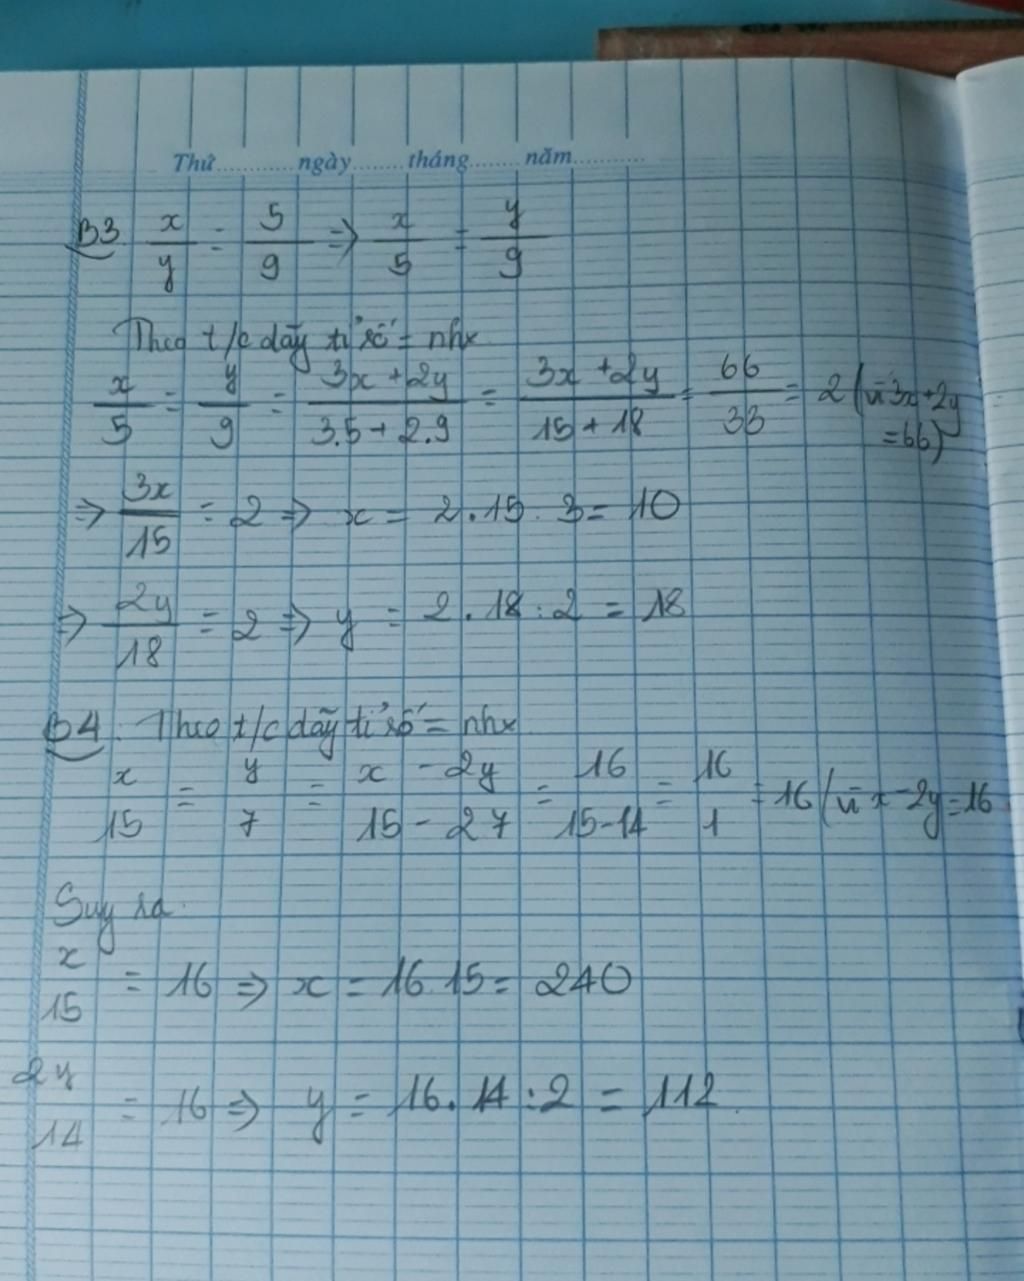 Thứ............ngày.......tháng.......năm............
B3 x/y = 5/9 => x/5 = y/9
Theo t/c dãy tỉ số = nhx
x/5 = y/9 = 3x+2y/3.5+2.9 = 3x+2y/15+18 = 66/33 = 2 (vì 3x+2y
=66)
=> 3x/15 = 2 => x = 2.15:3 = 10
=> 2y/18 = 2 => y = 2.18:2 = 18
B4. Theo t/c dãy tỉ số = nhx
x/15 = y/7 = x-2y/15-27 = 16/15-14 = 16/1 = 16 (vì x-2y=16
Suy ra
x/15 = 16 => x = 16.15 = 240
2y/14 = 16 => y = 16.14:2 = 112